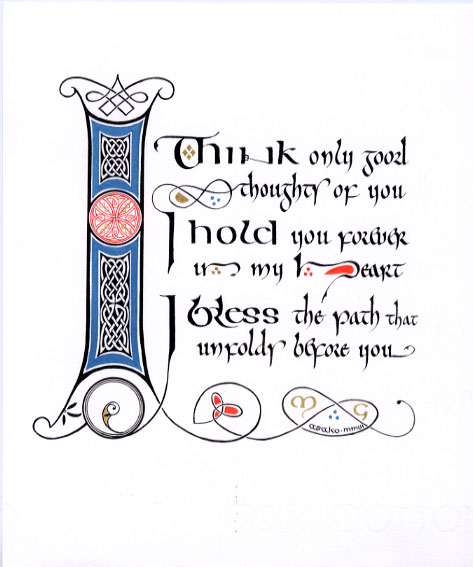 I Think only good
thoughts of you
I hold you forever
in my heart
I bless the path that
unfolds before you
M G
COTTO